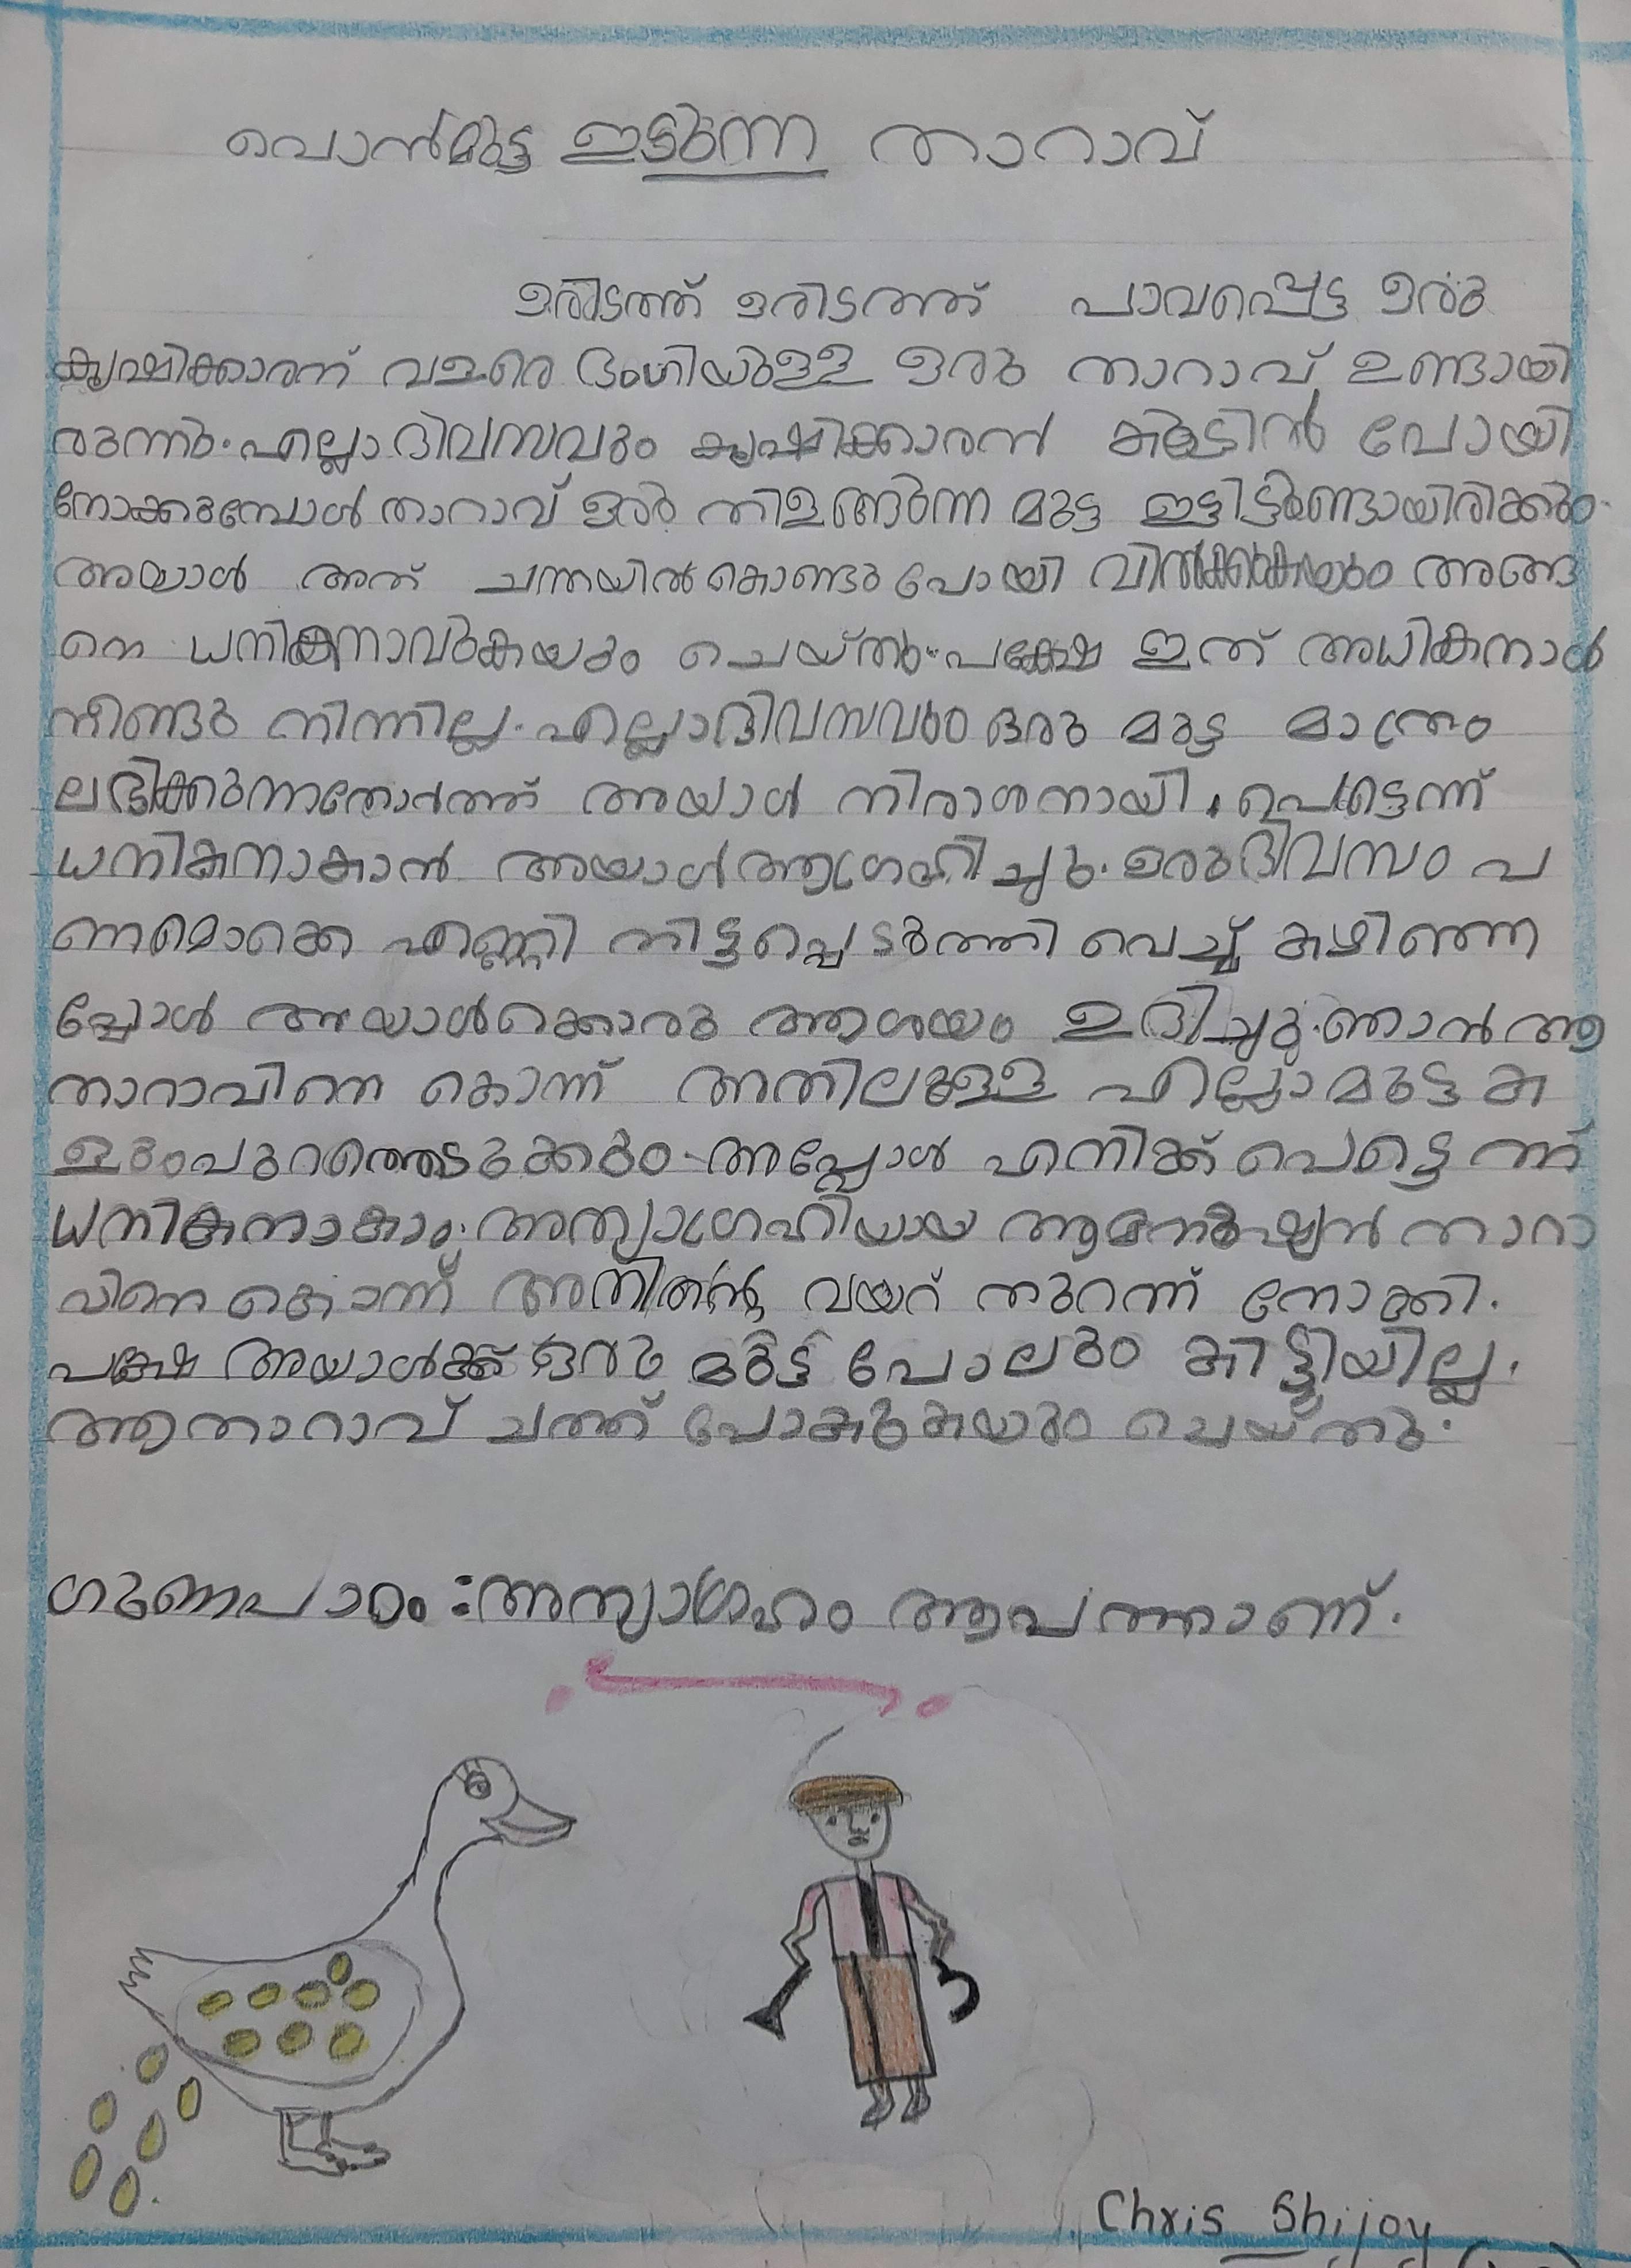 പൊൻമുട്ട ഇടുന്ന താറാവ്
ഒരിടത്ത് ഒരിടത്ത് പാവപ്പെട്ട ഒരു
കൃഷിക്കാരന് വളരെ ഭംഗിയുള്ള ഒരു താറാവ് ഉണ്ടായി
രുന്നു. എല്ലാ ദിവസവും കൃഷിക്കാരൻ കൂട്ടിൽ പോയി
നോക്കുമ്പോൾ താറാവ് ഒരു തിളങ്ങുന്ന മുട്ട ഇട്ടിട്ടുണ്ടായിരിക്കും.
അയാൾ അത് ചന്തയിൽ കൊണ്ടു പോയി വിൽക്കുകയും അങ്ങ
നെ ധനികനാവുകയും ചെയ്തു. പക്ഷേ ഇത് അധികനാൾ
നീണ്ടു നിന്നില്ല. എല്ലാദിവസവും ഒരു മുട്ട മാത്രം
ലഭിക്കുന്നതോർത്ത് അയാൾ നിരാശനായി. പെട്ടെന്ന്
ധനികനാകാൻ അയാൾ ആഗ്രഹിച്ചു. ഒരു ദിവസം പ
ണമൊക്കെ എണ്ണി തിട്ടപ്പെടുത്തി വെച്ച് കഴിഞ്ഞ
പ്പോൾ അയാൾക്കൊരു ആശയം ഉദിച്ചു. ഞാൻ ആ
താറാവിനെ കൊന്ന് അതിലുള്ള എല്ലാ മുട്ടക
ളും പുറത്തെടുക്കും. അപ്പോൾ എനിക്ക് പെട്ടെന്ന്
ധനികനാകാം. അത്യാഗ്രഹിയായ ആ മനുഷ്യൻ താറാ
വിനെ കൊന്ന് അതിൻ്റെ വയറ് തുറന്ന് നോക്കി.
പക്ഷേ അയാൾക്ക് ഒരു മുട്ട പോലും കിട്ടിയില്ല.
ആ താറാവ് ചത്ത് പോകുകയും ചെയ്തു.
ഗുണപാഠം : അത്യാഗ്രഹം ആപത്താണ്.
Chris Shijoy